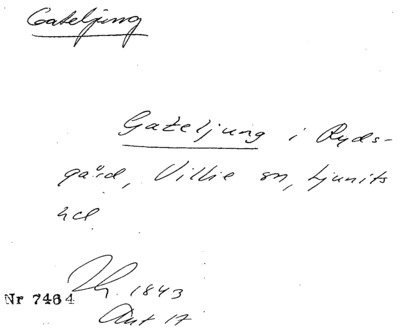 Gateljung
Gateljung i Ryds-
gård, Villie sn, Ljunits
hd
Th. 1843
Ant 17
Nr 7464